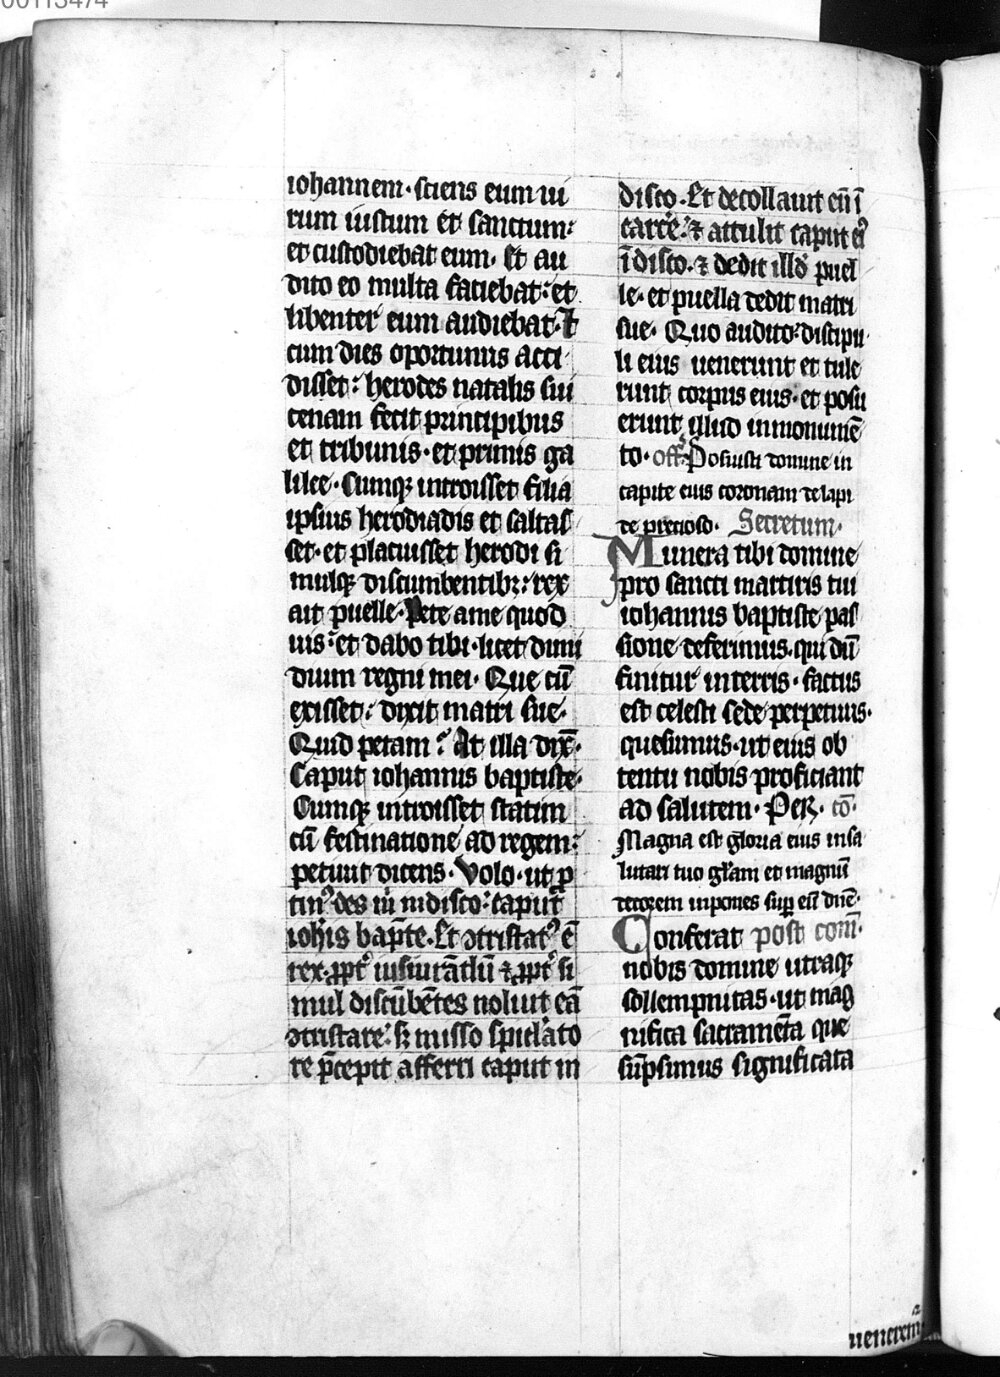 00113474
iohannem· sciens eum ui
rum iustum et sanctum:
et custodiebat eum. Et au
dito eo multa faciebat: et
libenter eum audiebat· Et
cum dies oportunus acci
disset: herodes natalis sui
cenam fecit principibus
et tribunis· et primis ga
lilee· Cumqꝫ introisset filia
ipsius herodiadis et saltas
set· et placuisset herodi si
mulqꝫ discumbentibꝫ: rex
ait puelle· Pete a me quod
uis: et dabo tibi· licet dimi
dium regni mei· Que cū
exisset: dixit matri sue·
Quid petam? At illa dix̄·
Caput iohannis baptiste·
Cumqꝫ introisset statim
cū festinatione ad regem:
petiuit dicens· Volo· ut ꝓ
tinꝰ des m̄ in disco: caput
ioh̄is bap̄te· Et ꝯtristatꝰ ē
rex· ꝓpt̄ iusiurādū ⁊ ꝓpt̄ si
mul discūbētes noluit eā
ꝯtristare: sꝫ misso spicl̄ato
re p̄cepit afferri caput in
disco· Et decollauit eū ī
carcē: ⁊ attulit caput eiꝰ
ī disco· ⁊ dedit illd̄ puel
le· et puella dedit matri
sue· Quo audito: discipu
li eius uenerunt et tule
runt corpus eius· et posu
erunt illud in monumē
to· off. Posuisti domine in
capite eius coronam de lapi
de precioso· Secretum·
Munera tibi domine
pro sancti martiris tui
iohannis baptiste pas
sione deferimus· qui dū
finitur in terris· factus
est celesti sede perpetuus·
quesumus· ut eius ob
tentu nobis proficiant
ad salutem· Per· cō·
Magna est gloria eius in sa
lutari tuo gl̄am et magnū
decorem inpones suꝑ eū dn̄e·
Conferat post com̄·
nobis domine utraqꝫ
sollempnitas· ut mag
nifica sacramēta que
sūpsimus significata
uenerem̄